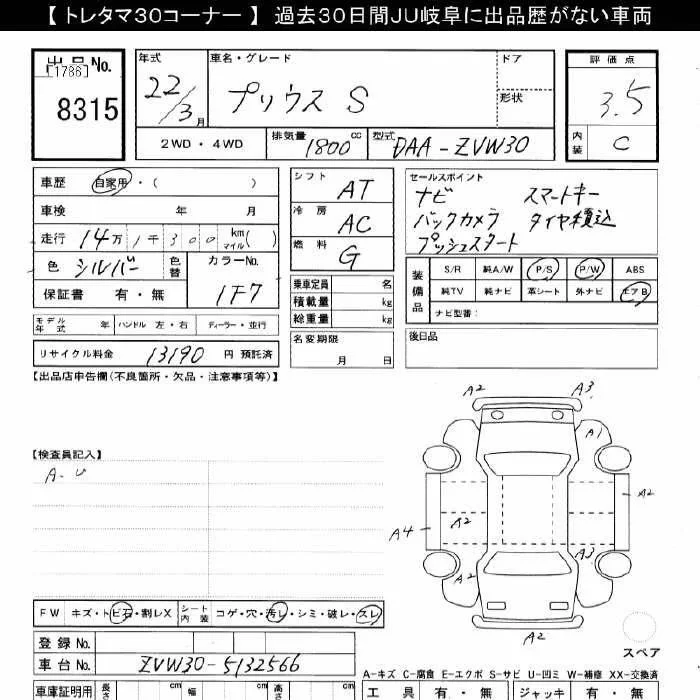 【 トレタマ30コーナー 】 過去30日間JU岐阜に出品歴がない車両
出品No.
[1786]
8315
年式
22/3月
車名・グレード
プリウス S
ドア
形状
評価点
3.5
内装
C
2WD ・ 4WD
排気量 1800 cc
型式 DAA-ZVW30
車歴 自家用・( )
車検 年 月
走行 14万1千300 km マイル( )
色 シルバー 色替
カラーNo. 1F7
保証書 有・無
モデル年式 年 ハンドル 左・右 ディーラー・並行
リサイクル料金 13190 円 預託済
シフト AT
冷房 AC
燃料 G
乗車定員 名
積載量 kg
総重量 kg
名変期限
月 日
セールスポイント
ナビ スマートキー
バックカメラ タイヤ積込
プッシュスタート
装備品
S/R 純A/W P/S P/W ABS
純TV 純ナビ 革シート 外ナビ エアB
ナビ型番:
後日品
【出品店申告欄(不良箇所・欠品・注意事項等)】
【検査員記入】
A-U
A2 A3
A1
A2
A4 A2
A3
A2
A2
スペア
FW キズ・トビ石・割レX シート内装 コゲ・穴・汚レ・シミ・破レ・スレ
登録No.
車台No. ZVW30-5132566
車庫証明用 長さ cm 幅 cm 高さ cm
A-キズ C-腐食 E-エクボ S-サビ U-凹ミ W-補修 XX-交換済
工具 有・無 ジャッキ 有・無